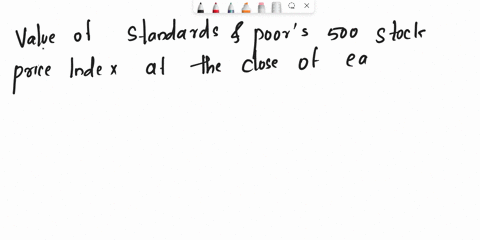 Value of Standards & poor's 500 stock
price Index at the close of ea